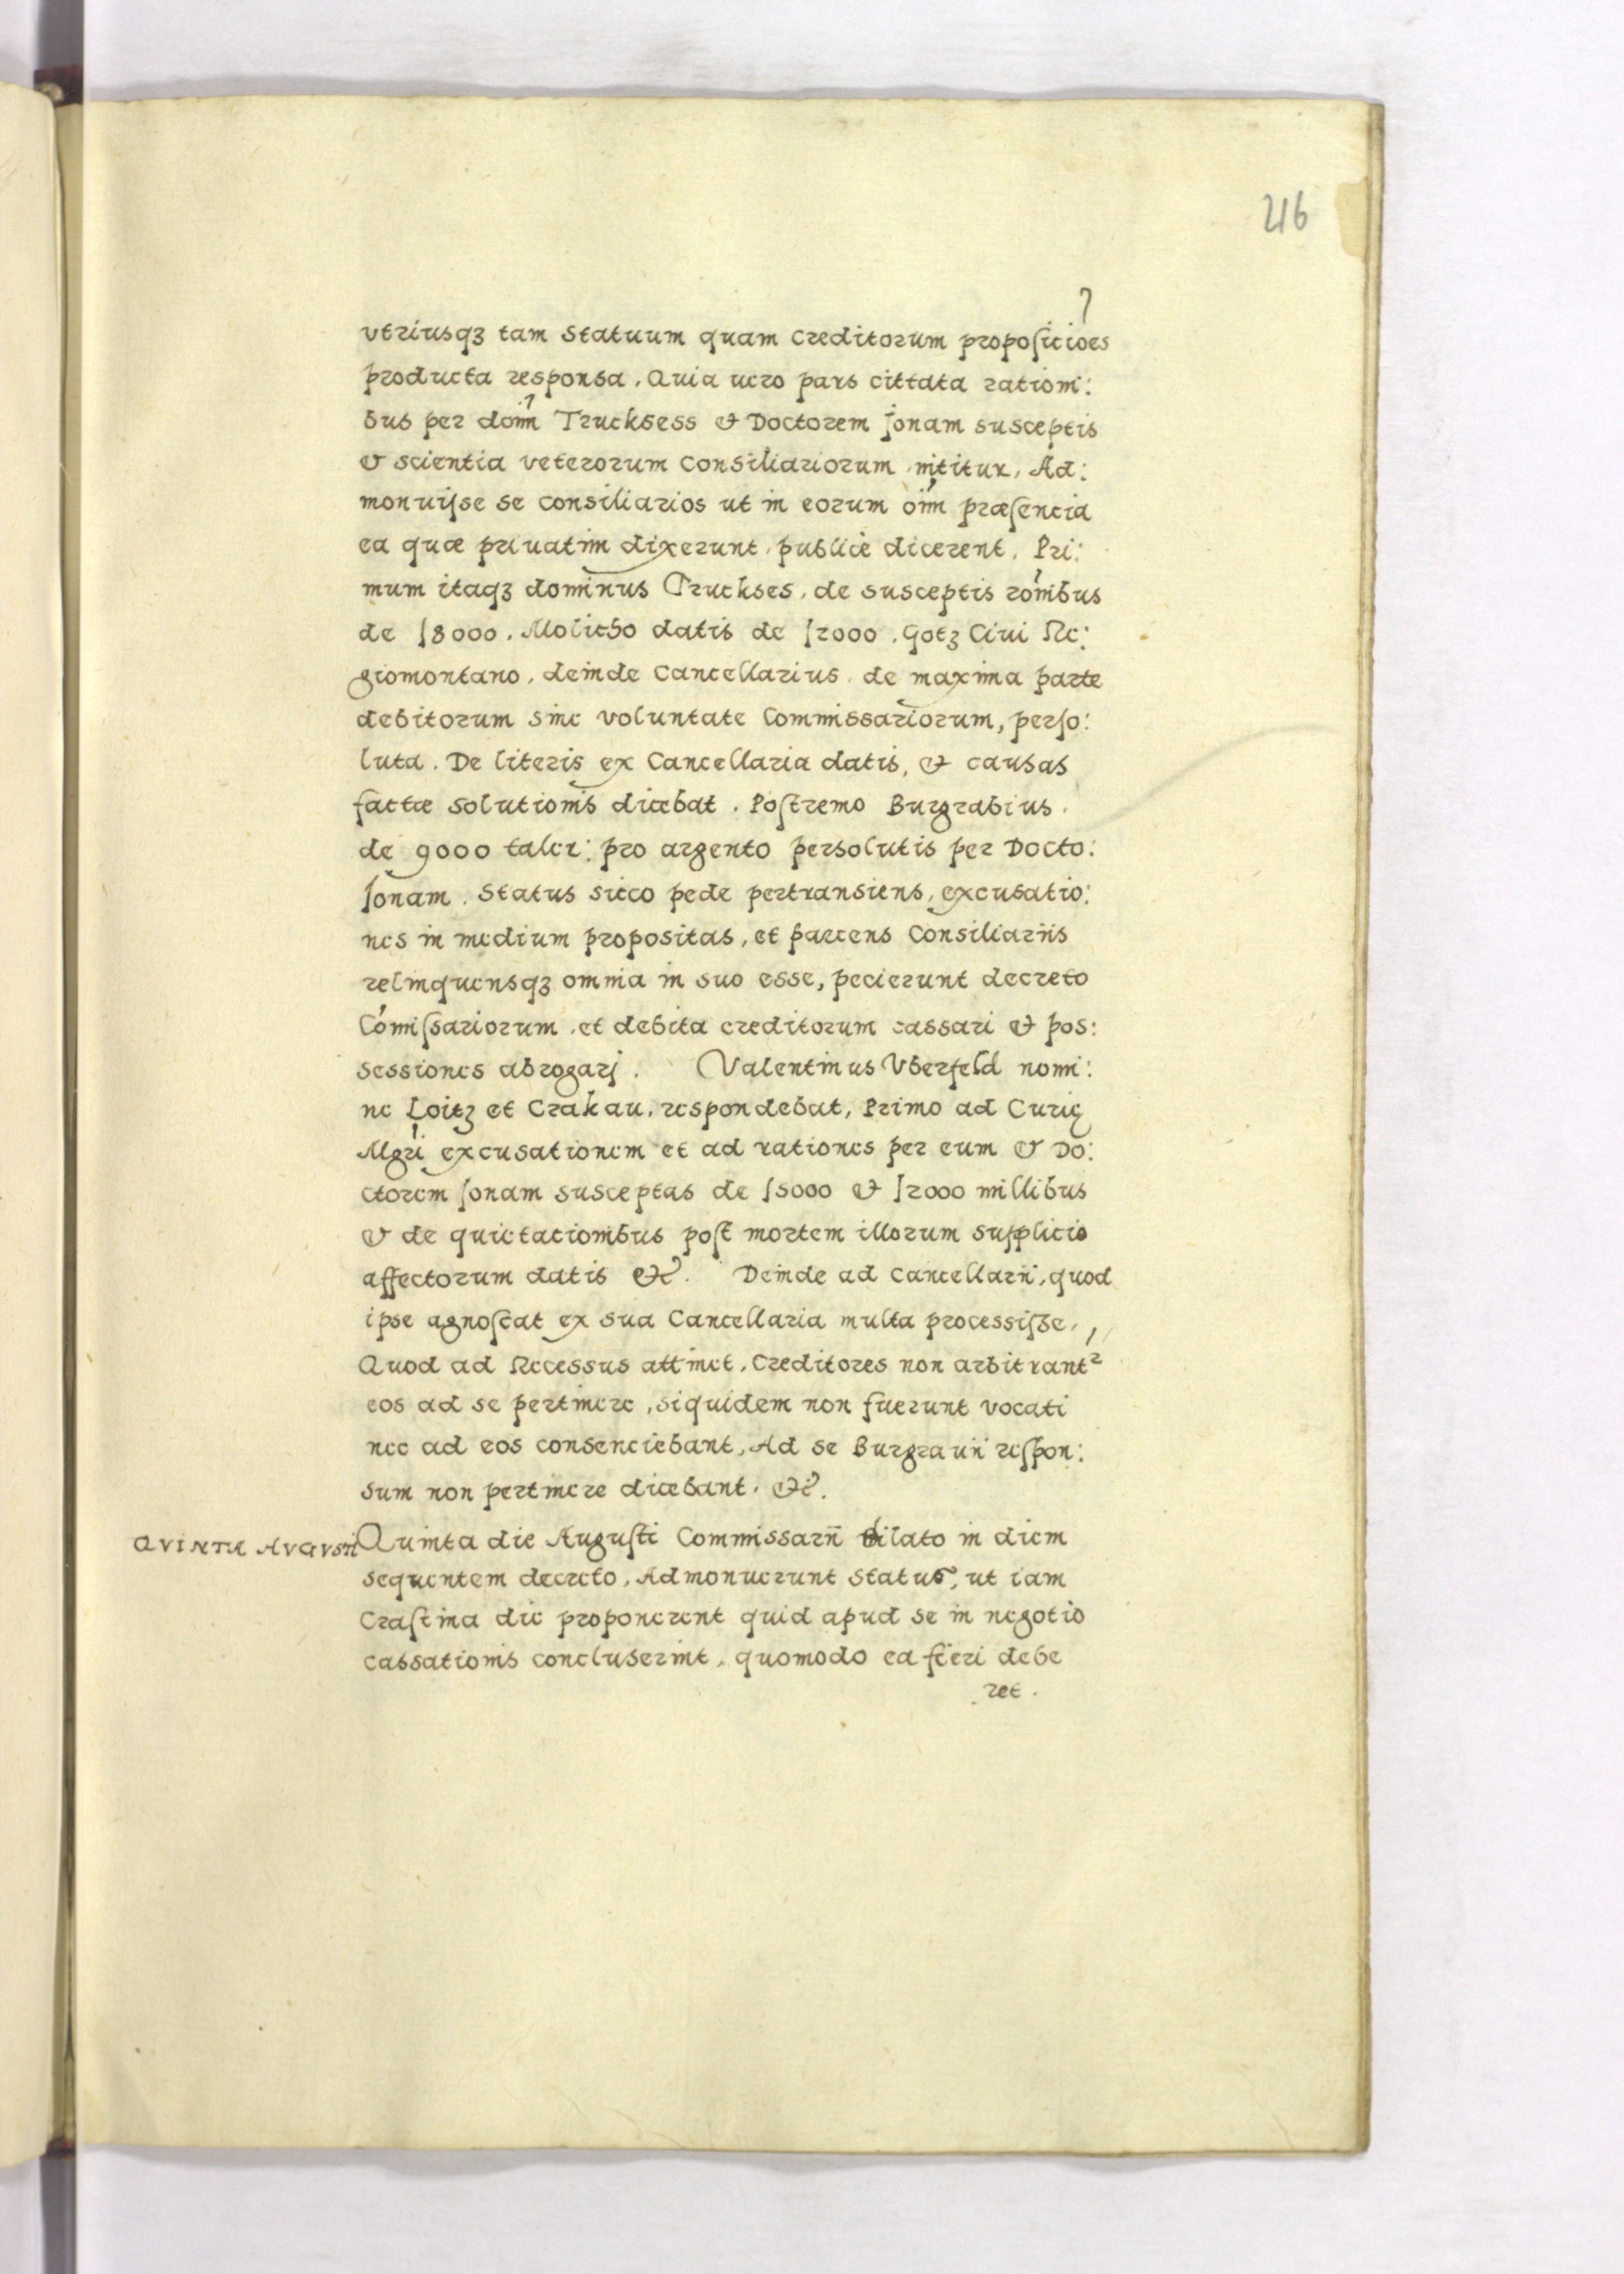 216
vtriusqȝ tam Statuum quam Creditorum propoſicio͂es
producta responsa. Quia uero pars cittata rationi:
bus per dom̃ Trucksess & Doctorem Jonam susceptis
& scientia veterorum Consiliariorum nititur, Ad:
monuiſse se consiliarios ut in eorum oim̃ præſencia
ea quæ priuatim dixerunt, publicè dicerent. Pri:
mum itaqȝ dominus Truckses, de susceptis ro͂nibus
de 18000. Molitho datis de 12000. Gotȝ Ciui Re:
giomontano, deinde Cancellarius, de maxima parte
debitorum sine voluntate Commissariorum, perſo:
luta. De literis ex Cancellaria datis, & causas
factæ solutionis dicebat. Poſtremo Burgrabius.
de 9000 taler: pro argento persolutis per Docto:
Jonam. Status sicco pede pertransiens, excusatio:
nes in medium propositas, et parcens Consiliariis
relinquensqȝ omnia in suo esse, pecierunt decreto
Com̃iſsariorum, et debita creditorum cassari & pos:
sessiones abrogari. Valentinus Vberfeld nomi:
ne Loitȝ et Crakau, respondebat, Primo ad Curię
Mg̃ri excusationem et ad rationes per eum & Do:
ctorem Jonam susceptas de 15000 & 12000 millibus
& de quictacionibus poſt mortem illorum supplicio
affectorum datis &c̃. Deinde ad Cancellarii, quod
ipse agnoſcat ex sua Cancellaria multa processiſse,
Quod ad Recessus attinet, Creditores non arbitrant͛
eos ad se pertinere, siquidem non fuerunt vocati
nec ad eos consenciebant, Ad se Burgrauii reſpon:
sum non pertinere dicebant. &c̃.
QVINTÆ AVGVSTI
Quinta die Auguſti Commissarii dilato in diem
sequentem decreto, Admonuerunt Status, ut iam
Craſtina die proponerent quid apud se in negotio
cassationis concluserint, quomodo ea fieri debe
ret.